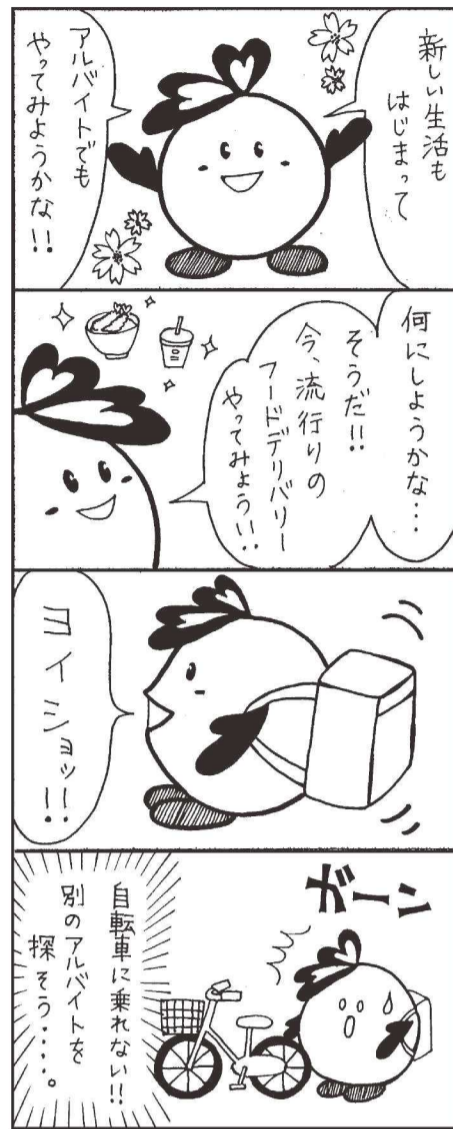 新しい生活も
はじまって
アルバイトでも
やってみようかな!!
何にしようかな…
そうだ!!
今、流行りの
フードデリバリー
やってみよう!!
ヨイショッ!!
ガーン
自転車に乗れない!!
別のアルバイトを
探そう….。